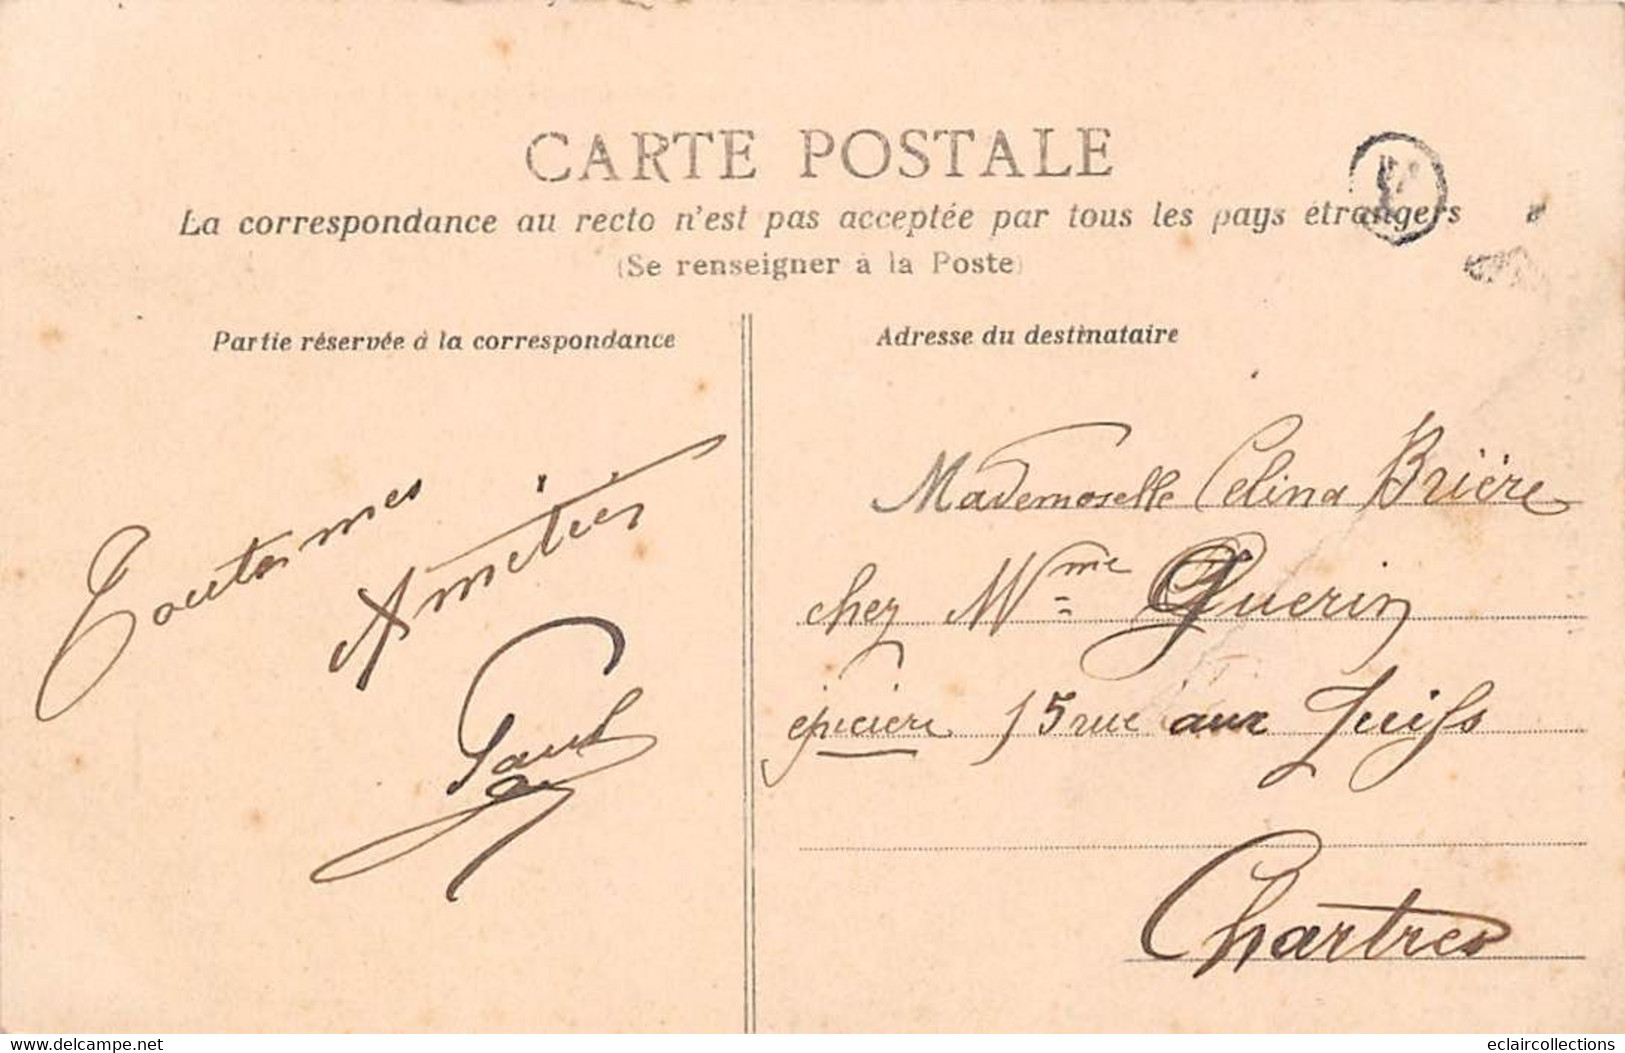 CARTE POSTALE
La correspondance au recto n'est pas acceptée par tous les pays étrangers
(Se renseigner à la Poste)
Partie réservée à la correspondance
Toutes mes
Amitiés
Paul
Adresse du destinataire
Mademoiselle Celina Brière
chez Mme Guerin
épicière 15 rue aux Juifs
Chartres
eclaircollections